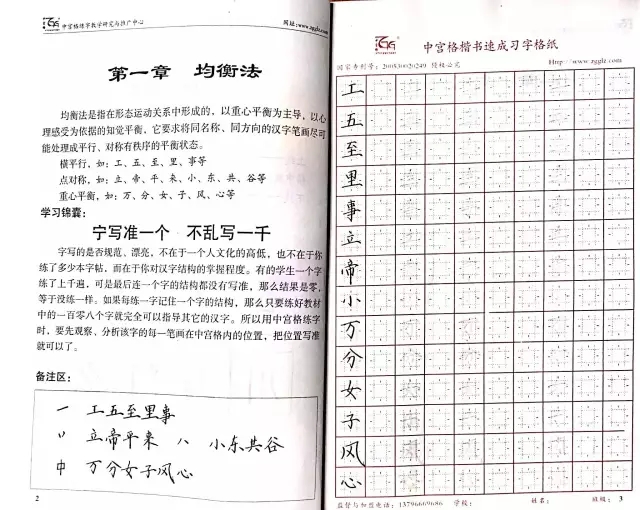 中宫格练字教学研究与推广中心
网址:www.zggle.net
第一章 均衡法
均衡法是指在形态运动关系中形成的，以重心平衡为主导，以心
理感受为依据的知觉平衡，它要求将同名称、同方向的汉字笔画尽可
能处理成平行、对称有秩序的平衡状态。
横平行，如：工、五、至、里、事等
点对称，如：立、帝、平、来、小、东、共、谷等
重心平衡，如：万、分、女、子、风、心等
学习锦囊：
宁写准一个 不乱写一千
字写的是否规范、漂亮，不在于一个人文化的高低，也不在于你
练了多少本字帖，而在于你对汉字结构的掌握程度。有的学生一个字
练了上千遍，可是最后连一个字的结构都没有写准，那么结果是零，
等于没练一样。如果每练一字记住一个字的结构，那么只要练好教材
中的一百零八个字就完全可以指导其它的汉字。所以用中宫格练字
时，要先观察、分析该字的每一笔画在中宫格内的位置，把位置写准
就可以了。
备注区：
一 工五至里事
丷 立帝平来 八 小东共谷
中 万分女子风心
2
中宫格楷书速成习字格纸
国家专利号：200530020249 侵权必究
Http://www.zggle.net
工
五
至
里
事
立
帝
小
万
分
女
子
风
心
监督与加盟电话：13796669686 学校： 姓名： 班级： 3